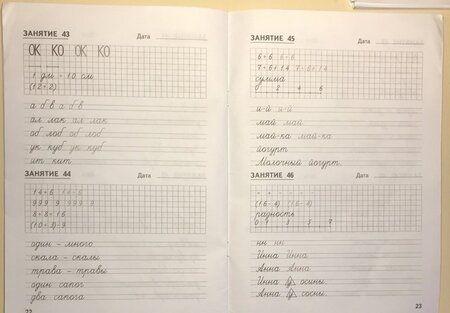 ЗАНЯТИЕ 43 Дата
ОК КО ОК КО
1 дм = 10 см
(12 + 2)
а б в а б в
ал лак ал лак
об лоб об лоб
ук куб ук куб
ит кит
ЗАНЯТИЕ 44 Дата
14 - 6 14 - 6
999 9 999 9
8 + 8 = 16
(10 + 3) - 9
один – много
скала – скалы
трава – травы
один сапог
два сапога
22
ЗАНЯТИЕ 45 Дата
6 = 6 6 = 6
7 - 6 + 14 7 - 6 + 14
сумма
0 2 4 6
и-й и-й
май май
май-ка май-ка
йогурт
Молочный йогурт.
ЗАНЯТИЕ 46 Дата
(16 - 4) (16 - 4)
разность
нн нн
Инна Инна
Анна Анна
Инна осины.
Анна сосны.
23